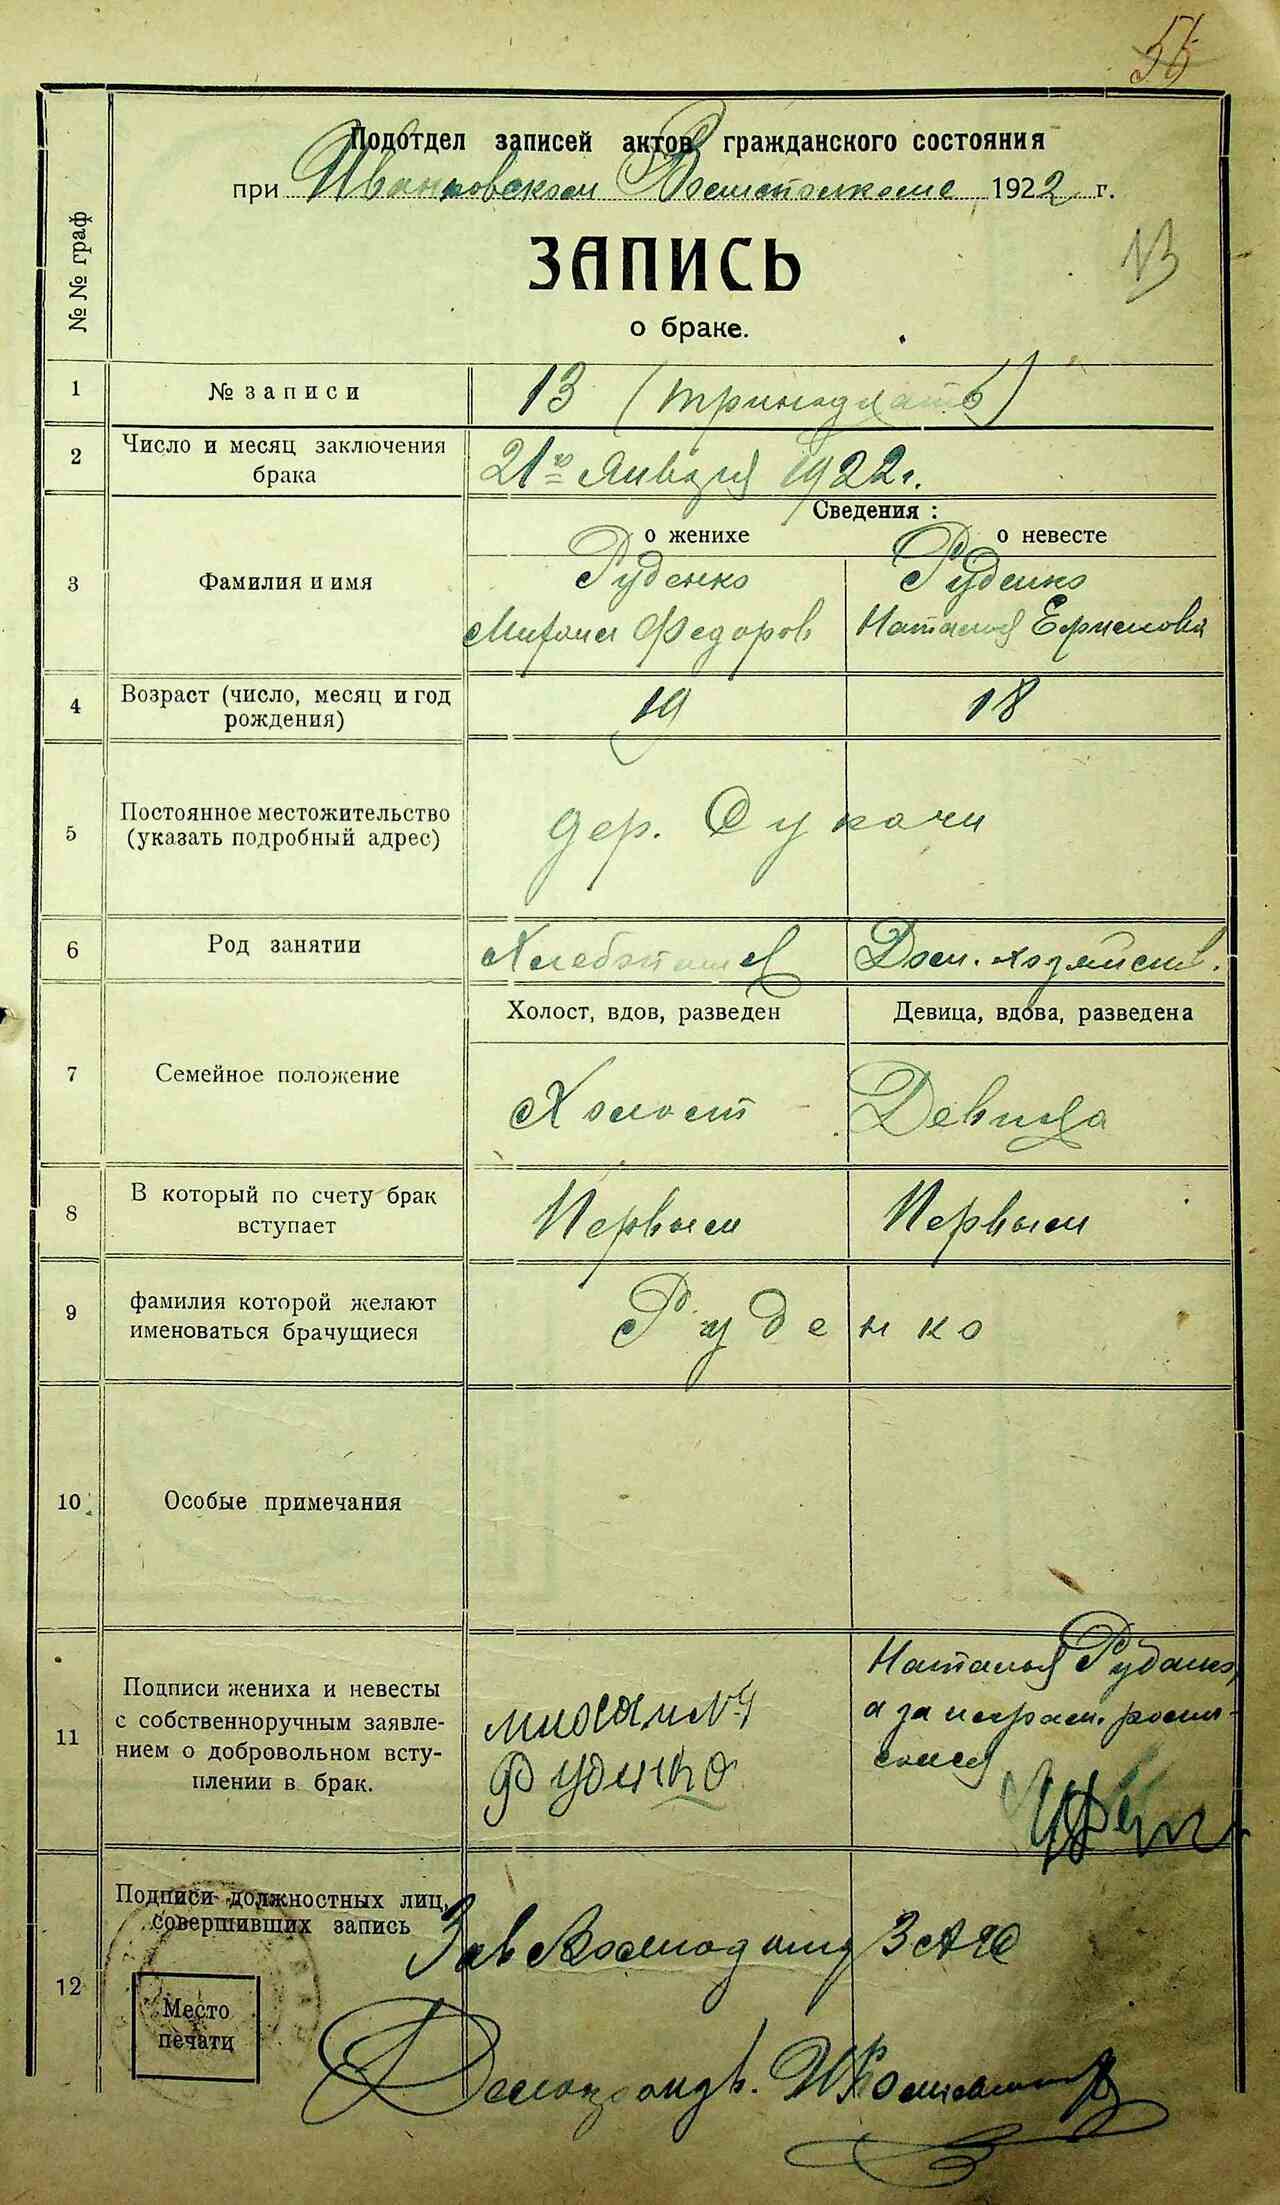 55
Подотдел записей актов гражданского состояния
при Иванковском Волисполкоме 1922 г.
13
ЗАПИСЬ
о браке.
№ № граф
1 № записи 13 (тринадцать)
2 Число и месяц заключения
брака
21го Января 1922 г.
Сведения:
о женихе о невесте
3 Фамилия и имя
Руденко Руденко
Михаил Федоров Наталья
4 Возраст (число, месяц и год
рождения)
19 18
5 Постоянное местожительство
(указать подробный адрес)
дер. Сукачи
6 Род занятии Хлебопашец Дом. хозяйств.
Холост, вдов, разведен Девица, вдова, разведена
7 Семейное положение
Холост Девица
8 В который по счету брак
вступает
Первым Первым
9 фамилия которой желают
именоваться брачущиеся
Руденко
10 Особые примечания
11 Подписи жениха и невесты
с собственноручным заявле-
нием о добровольном всту-
плении в брак.
Руденко
Наталья Руденко
а за неграм. распи-
сался
12 Подписи должностных лиц,
совершивших запись
Место
печати
Зав Волподотд ЗАГС
Делопроизв.